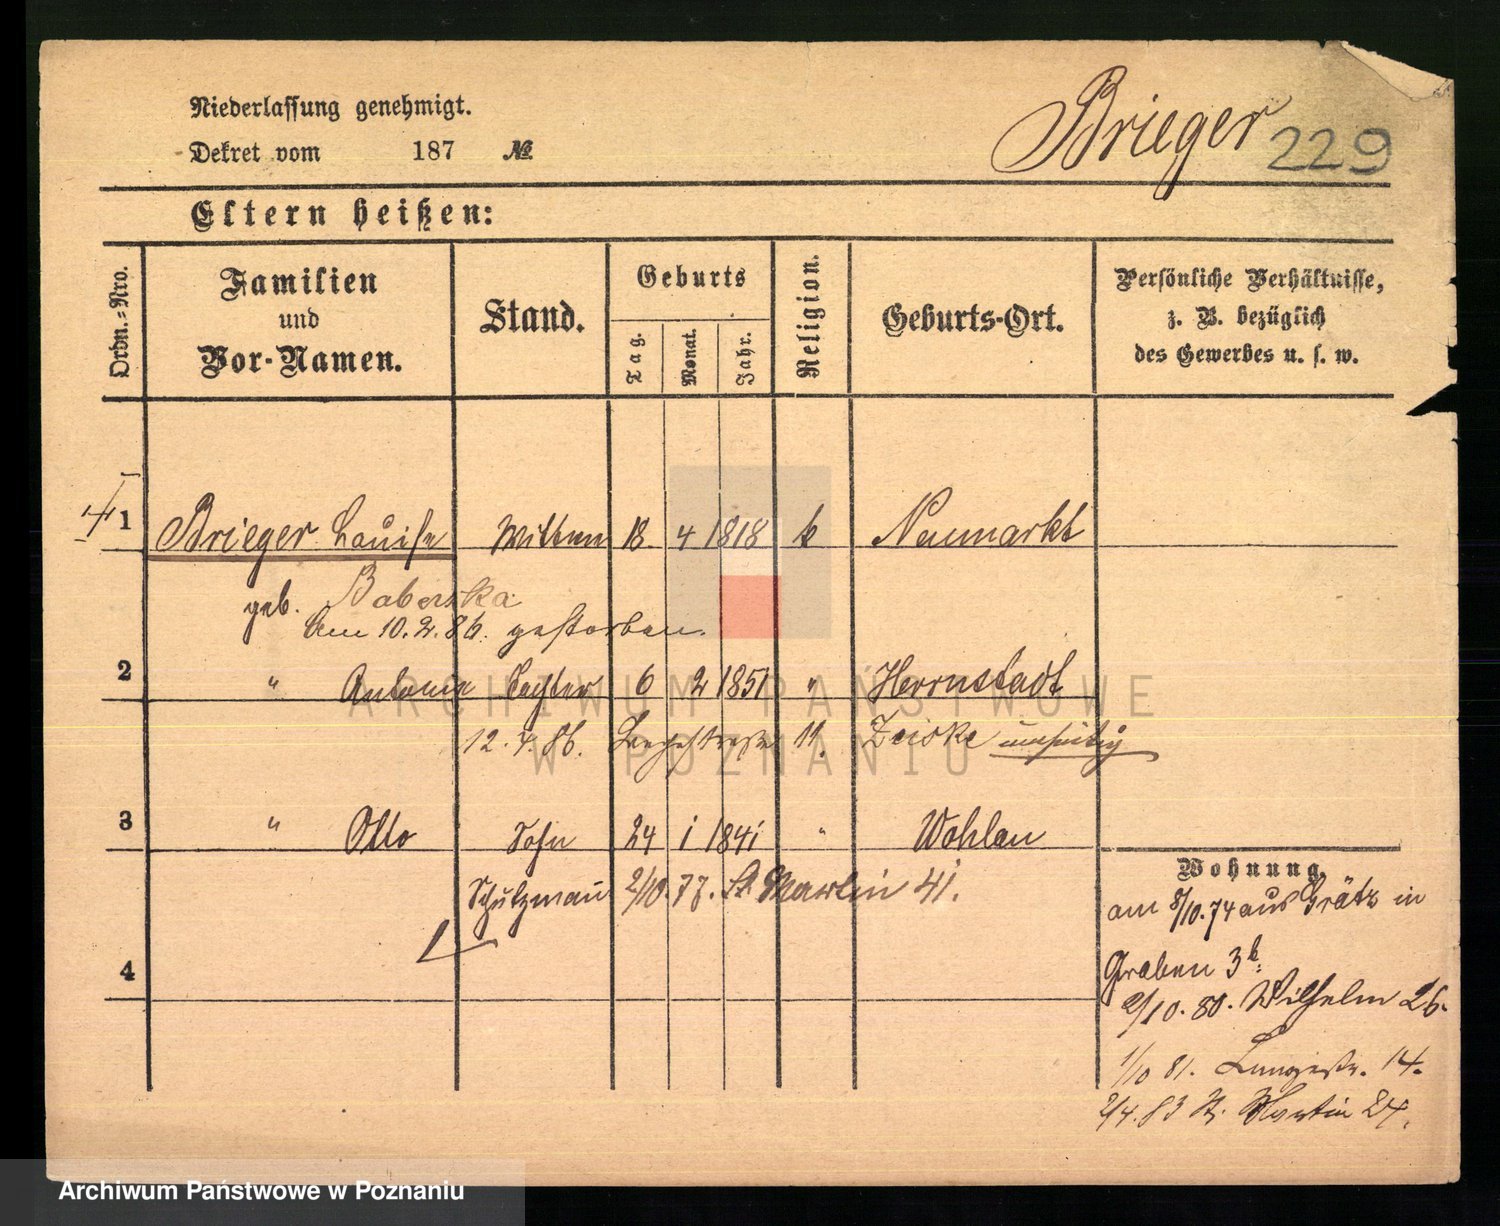 Niederlassung genehmigt.
Dekret vom 187 №
Brieger 229
Eltern heißen:
Ordn.-Nro.
Familien
und
Vor-Namen.
Stand.
Geburts
Tag.
Monat.
Jahr.
Religion.
Geburts-Ort.
Persönliche Verhältnisse,
z. B. bezüglich
des Gewerbes u. s. w.
1 Brieger Louise Wittwe 18 4 1818 k Neumarkt
geb. Baberska
Am 10.2.86. gestorben.
2 " Antonie Tochter 6 2 1851 " Herrnstadt
12.4.86. 11. Zeiske umseitig
3 " Otto Sohn 24 1 1841 " Wohlau
Schutzmann 2/10.77. St. Martin 41.
4
Wohnung.
am 8/10.74 aus Grätz in
Graben 3b.
2/10.80. Wilhelm 26.
1/10 81. Langestr. 14.
2/4.83 St. Martin 24.
ARCHIWUM PAŃSTWOWE
W POZNANIU
Archiwum Państwowe w Poznaniu